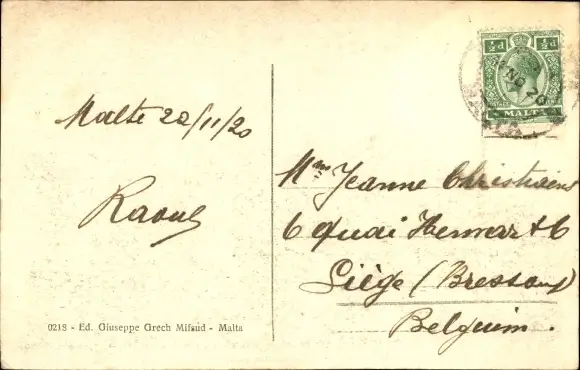 Malte 22/11/20
Raoul
½d ½d
NO 20
MALTA
Mme Jeanne Christiaens
6 Quai Hemart 6
Liège (Bressoux)
Belguim.
0218 - Ed. Giuseppe Grech Mifsud - Malta